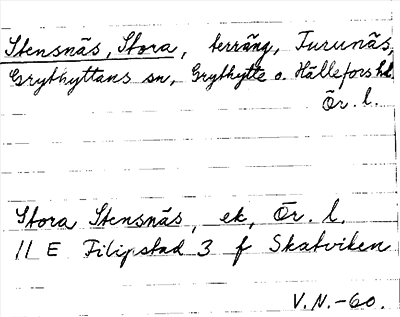 Stensnäs, Stora, terräng, Turunäs,
Grythyttans sn, Grythytte o. Hällefors hd.
Ör. l.
Stora Stensnäs, ek, Ör. l.
11 E Filipstad 3 f Skatviken
V.N.-60.